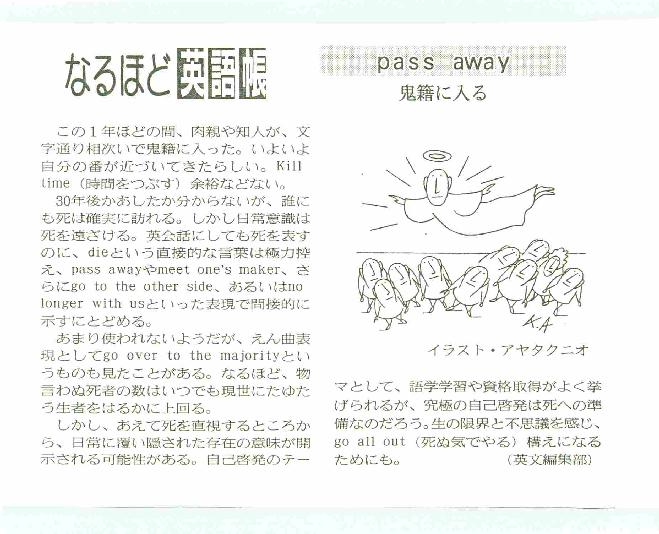 なるほど英語帳
pass away
鬼籍に入る
この1年ほどの間、肉親や知人が、文
字通り相次いで鬼籍に入った。いよいよ
自分の番が近づいてきたらしい。Kill
time（時間をつぶす）余裕などない。
30年後かあしたか分からないが、誰に
も死は確実に訪れる。しかし日常意識は
死を遠ざける。英会話にしても死を表す
のに、dieという直接的な言葉は極力控
え、pass awayやmeet one's maker、さ
らにgo to the other side、あるいはno
longer with usといった表現で間接的に
示すにとどめる。
あまり使われないようだが、えん曲表
現としてgo over to the majorityとい
うものも見たことがある。なるほど、物
言わぬ死者の数はいつでも現世にたゆた
う生者をはるかに上回る。
しかし、あえて死を直視するところか
ら、日常に覆い隠された存在の意味が開
示される可能性がある。自己啓発のテー
K.A
イラスト・アヤタクニオ
マとして、語学学習や資格取得がよく挙
げられるが、究極の自己啓発は死への準
備なのだろう。生の限界と不思議を感じ、
go all out（死ぬ気でやる）構えになる
ためにも。（英文編集部）